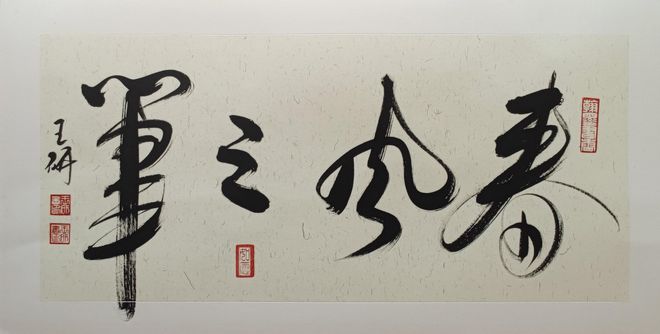 春风之筆
王研